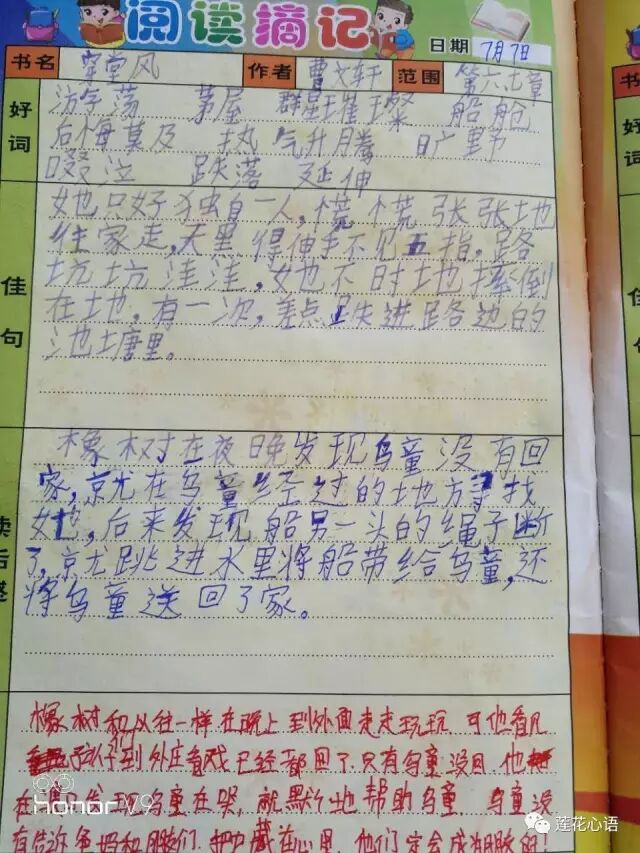 阅读摘记
日期 7月7日
书名 穿堂风 作者 曹文轩 范围 第六七章
好词
游荡 茅屋 群星璀璨 船舱
后悔莫及 热气升腾 旷野
啜泣 跌落 延伸
佳句
她只好独自一人,慌慌张张地
往家走,天黑得伸手不见五指,路
坑坑洼洼,她不时地摔倒
在地,有一次,差点跌进路边的
池塘里。
读后感
橡树在夜晚发现乌童没有回
家,就在乌童经过的地方寻找
她,后来发现船另一头的绳子断
了,就跳进水里将船带给乌童,还
将乌童送回了家。
橡树和以往一样在晚上到外面走走玩玩,可他看见
孩子们到外庄看戏已经都回了只有乌童没回 他
在 发现乌童在哭,就默默地帮助乌童 乌童没
有告诉爸妈和朋友们 把 藏在心里,他们定会成为朋友的!
HONOR V9
莲花心语